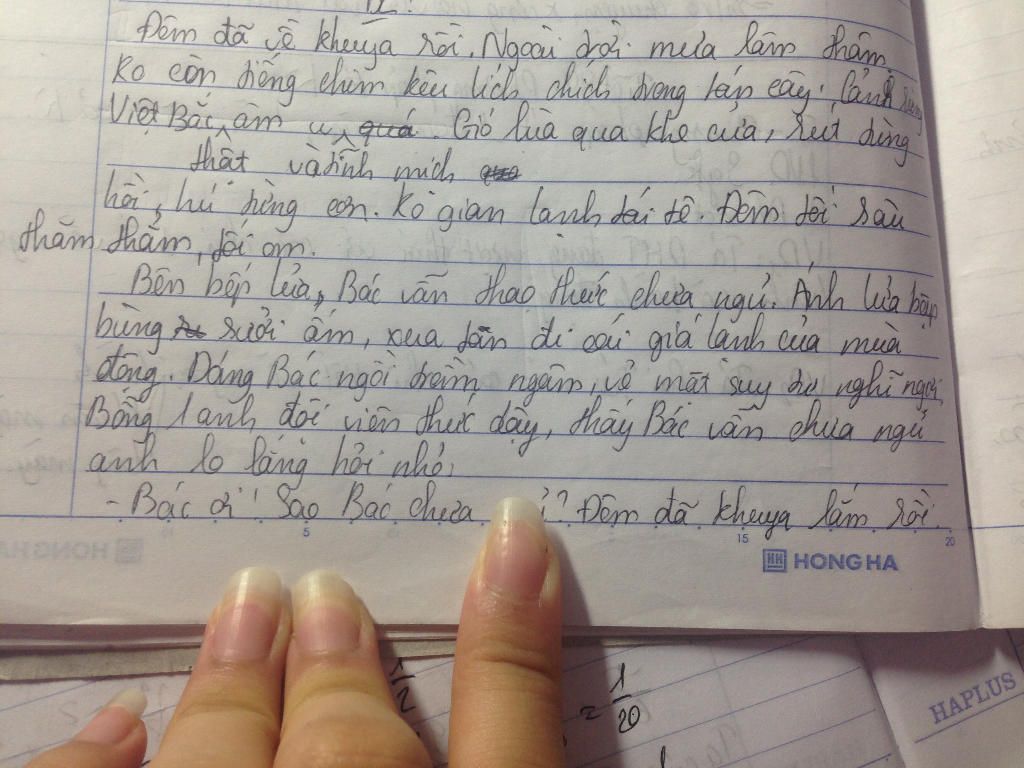 Đêm đã về khuya rồi. Ngoài trời mưa lâm thâm
Ko còn tiếng chim kêu lích chích trong tán cây. Cảnh rừng
Việt Bắc âm u quá. Gió luà qua khe cửa, rút từng
thật và tĩnh mịch
hồi, hú từng cơn. Ko gian lạnh tái tê. Đêm tối sâu
thăm thẳm, tối om.
Bên bếp lửa, Bác vẫn thao thức chưa ngủ. Ánh lửa bập
bùng sưởi ấm, xua tan đi cái giá lạnh của mùa
đông. Dáng Bác ngồi trầm ngâm, vẻ mặt suy tư nghĩ ngợi
Bỗng 1 anh đội viên thức dậy, thấy Bác vẫn chưa ngủ
anh lo lắng hỏi nhỏ:
- Bác ơi! Sao Bác chưa ? Đêm đã khuya lắm rồi.
5 15 20
HONG HA
HAPLUS
1/2
= 1/20